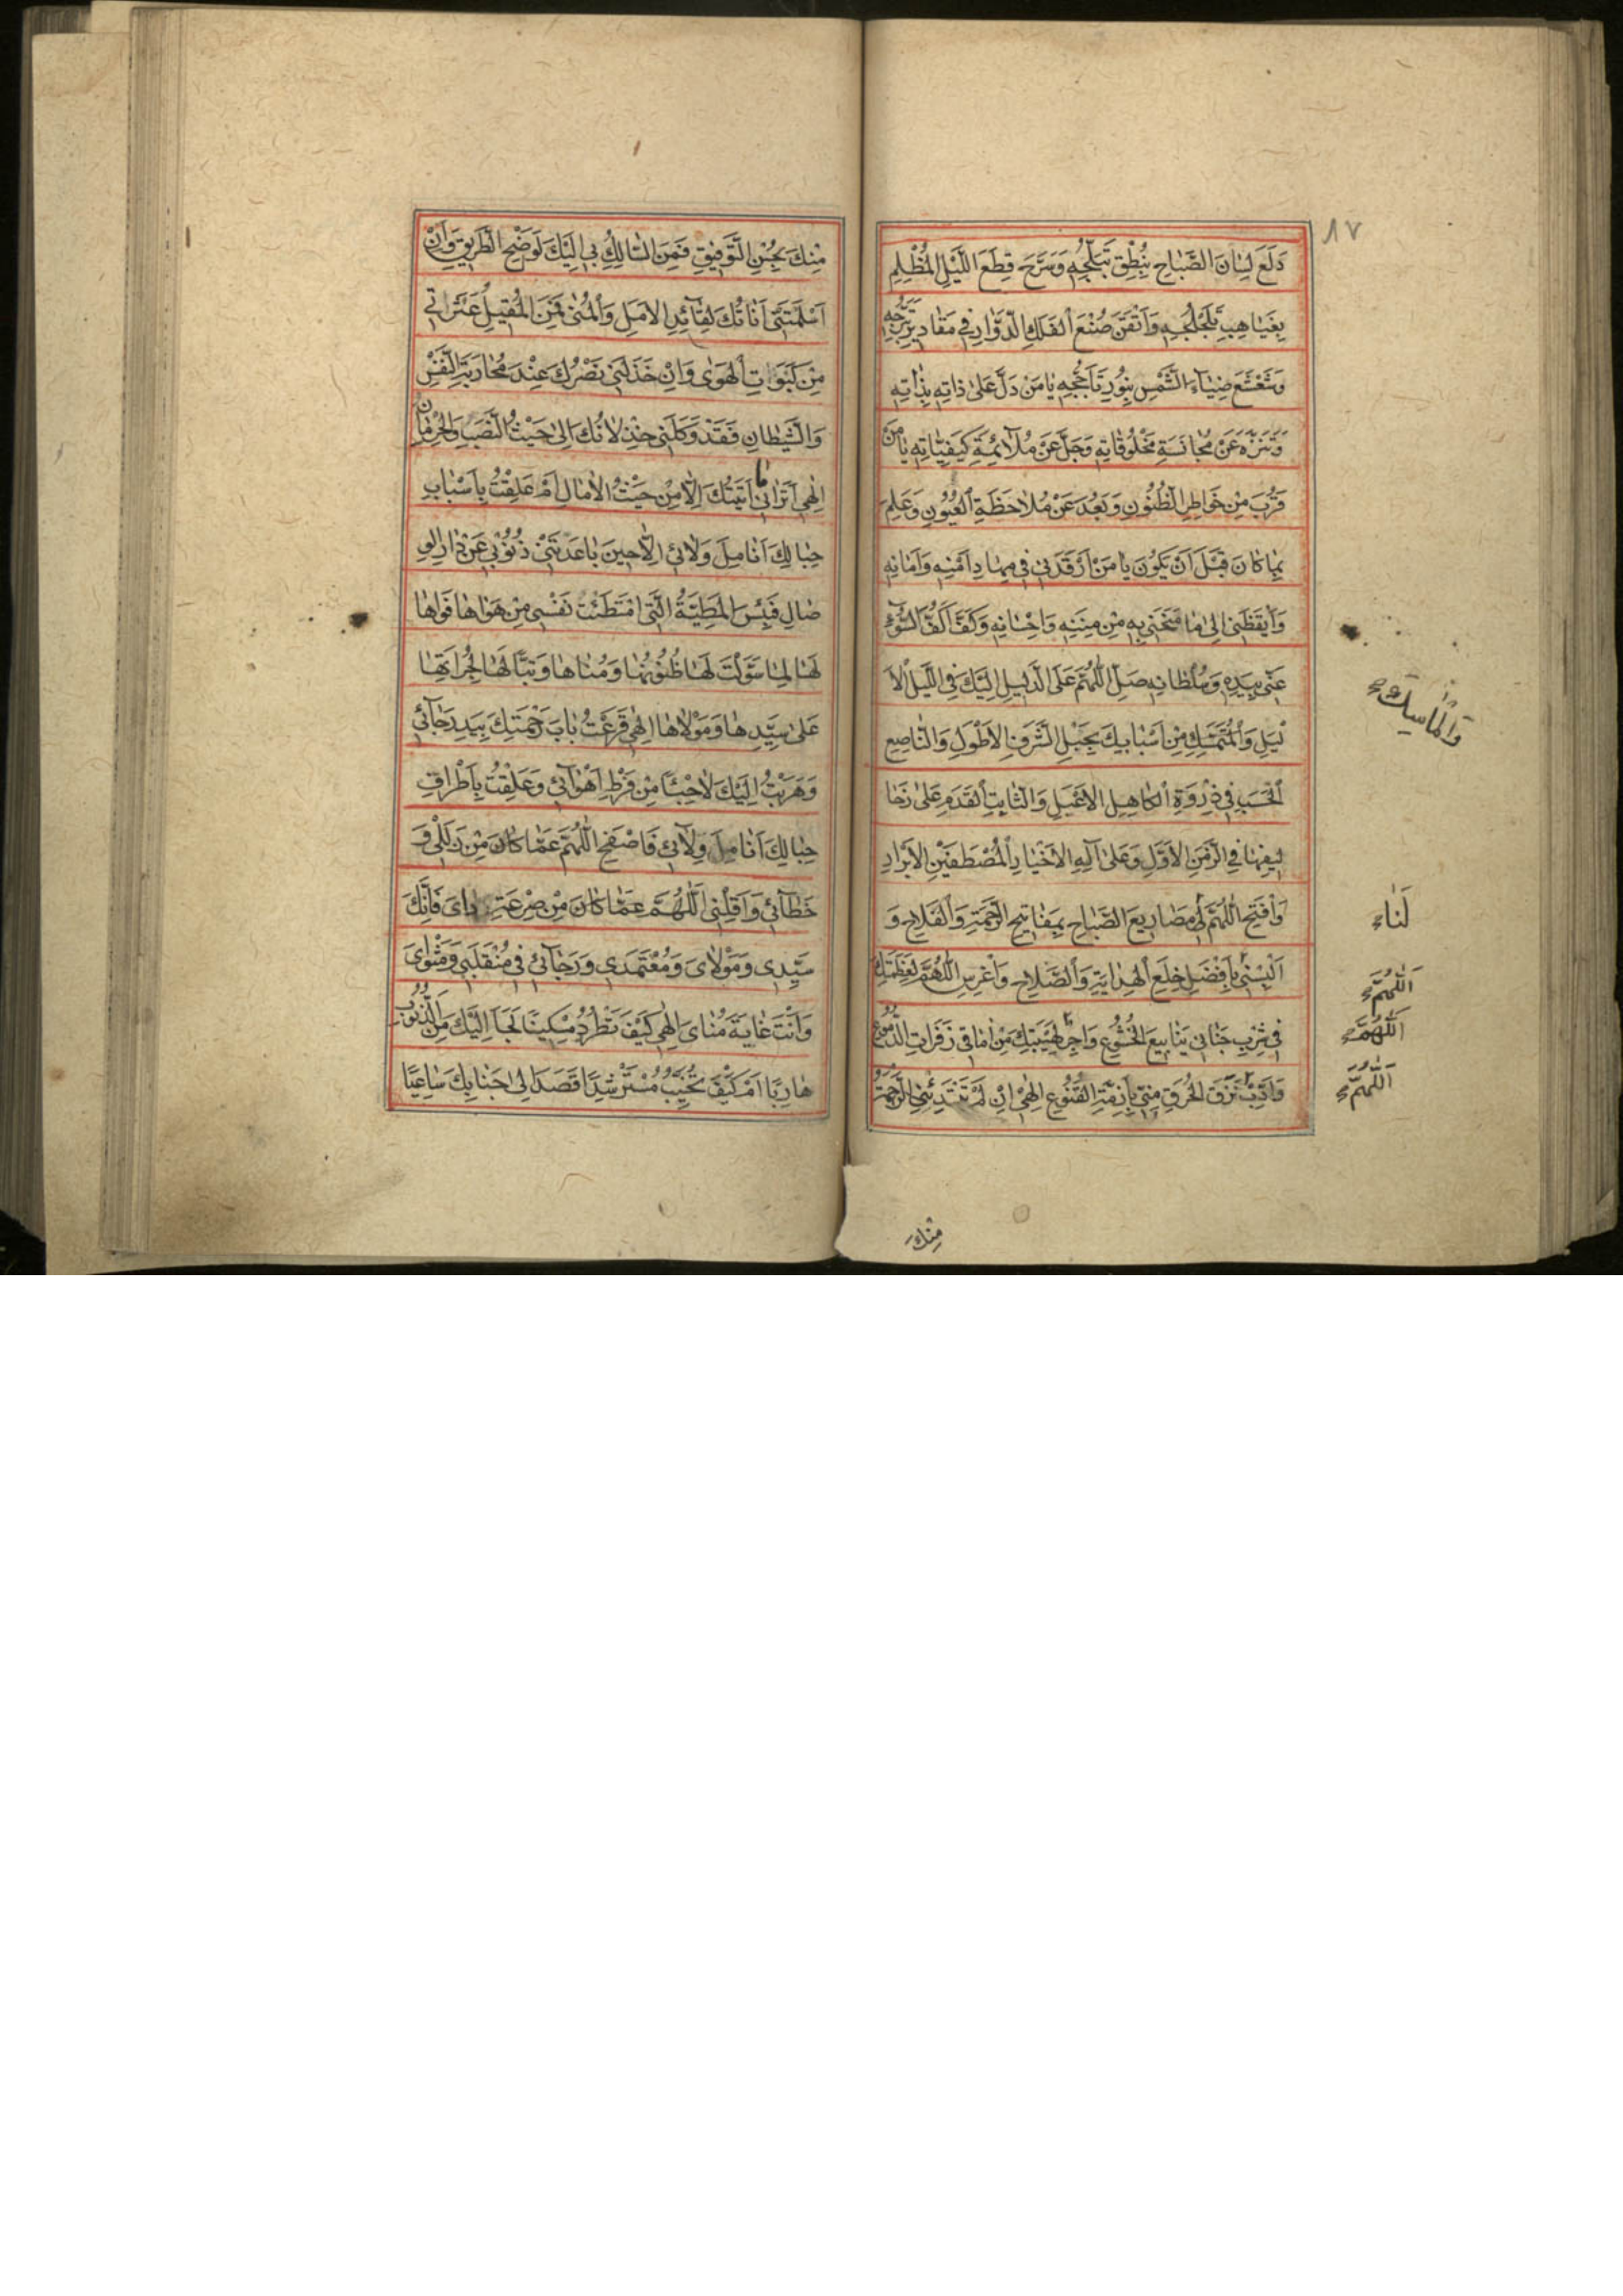 ٨٧
دَلَعَ لِسٰانَ الصَّبٰاحِ بِنُطْقِ تَبَلُّجِهِ وَسَرَّحَ قِطَعَ اللَّيْلِ الْمُظْلِمِ
بِغَيٰاهِبِ تَلَجْلُجِهِ وَاَتْقَنَ صُنْعَ الْفَلَكِ الدَّوّٰارِ فِي مَقٰادِيرِ تَبَرُّجِهِ
وَشَعْشَعَ ضِيٰاءَ الشَّمْسِ بِنُورِ تَاَجُّجِهِ يٰا مَنْ دَلَّ عَلىٰ ذٰاتِهِ بِذٰاتِهِ
وَتَنَزَّهَ عَنْ مُجٰانَسَةِ مَخْلُوقٰاتِهِ وَجَلَّ عَنْ مُلٰائَمَةِ كَيْفِيّٰاتِهِ يٰا مَنْ
قَرُبَ مِنْ خَوٰاطِرِ الظُّنُونِ وَبَعُدَ عَنْ مُلاٰحَظَةِ الْعُيُونِ وَعَلِمَ
بِمٰا كٰانَ قَبْلَ اَنْ يَكُونَ يٰا مَنْ اَرْقَدَنِي فِي مِهٰادِ اَمْنِهِ وَاَمٰانِهِ
وَاَيْقَظَنِي اِلىٰ مٰا مَنَحَنِي بِهِ مِنْ مِنَنِهِ وَاِحْسٰانِهِ وَكَفَّ اَكُفَّ السُّوٓءِ
عَنِّي بِيَدِهِ وَسُلْطٰانِهِ صَلِّ اللّٰهُمَّ عَلَى الدَّلِيلِ اِلَيْكَ فِي اللَّيْلِ الْاَ
لْيَلِ وَالْمُتَمَسِّكِ مِنْ اَسْبٰابِكَ بِحَبْلِ الشَّرَفِ الْاَطْوَلِ وَالنّٰاصِعِ
وَالْمٰاسِكِ
الْحَسَبِ فِي ذِرْوَةِ الْكٰاهِلِ الْاَعْبَلِ وَالثّٰابِتِ الْقَدَمِ عَلىٰ زَحٰا
لِيفِهٰا فِي الزَّمَنِ الْاَوَّلِ وَعَلىٰ آلِهِ الْاَخْيٰارِ الْمُصْطَفَيْنَ الْاَبْرٰارِ
وَافْتَحِ اللّٰهُمَّ لِي مَصٰارِيعَ الصَّبٰاحِ بِمَفٰاتِيحِ الرَّحْمَةِ وَالْفَلٰاحِ وَ
لَنٰا
اَلْبِسْنِي بِاَفْضَلِ خِلَعِ الْهِدٰايَةِ وَالصَّلٰاحِ وَاغْرِسِ اللّٰهُمَّ لِعَظَمَتِكَ
اَللّٰهُمَّ
فِي شِرْبِ جَنٰانِي يَنٰابِيعَ الْخُشُوعِ وَاَجْرِ لِهَيْبَتِكَ مِنْ اٰمٰاقِي زَفَرٰاتِ الدُّمُوعِ
اَللّٰهُمَّ
وَاَدِّبْ نَزَقَ الْخُرْقِ مِنِّي بِاَزِمَّةِ الْقُنُوعِ اِلٰهِي اِنْ لَمْ تَبْتَدِئْنِي الرَّحْمَةُ
اَللّٰهُمَّ
مِنْكَ
مِنْكَ بِحُسْنِ التَّوْفِيقِ فَمَنِ السّٰالِكُ بِي اِلَيْكَ لَوٰضِحِ الطَّرِيقِ وَاِنْ
اَسْلَمَتْنِي اَنٰاتُكَ لِقٰائِدِ الْاَمَلِ وَالْمُنىٰ فَمَنِ الْمُقِيلُ عَثَرٰاتِي
مِنْ كَبَوٰاتِ الْهَوىٰ وَاِنْ خَذَلَنِي نَصْرُكَ عِنْدَ مُحٰارَبَةِ النَّفْسِ
وَالشَّيْطٰانِ فَقَدْ وَكَلَنِي خِذْلاٰنُكَ اِلىٰ حَيْثُ النَّصَبِ وَالْحِرْمٰانِ
اِلٰهِي اَتَرٰانِي مٰا اَتَيْتُكَ اِلّٰا مِنْ حَيْثُ الْاٰمٰالِ اَمْ عَلِقْتُ بِاَسْبٰابِ
حِبٰالِكَ اَنٰامِلَ وَلٰائِي اِلّٰا حِينَ بٰاعَدَتْنِي ذُنُوبِي عَنْ دٰارِ الْوِ
صٰالِ فَبِئْسَ الْمَطِيَّةُ الَّتِي امْتَطَئَتْ نَفْسِي مِنْ هَوٰاهٰا فَوٰاهٰا
لَهٰا لِمٰا سَوَّلَتْ لَهٰا ظُنُونُهٰا وَمُنٰاهٰا وَتَبًّا لَهٰا لِجُرْاَتِهٰا
عَلىٰ سَيِّدِهٰا وَمَوْلاٰهٰا اِلٰهِي قَرَعْتُ بٰابَ رَحْمَتِكَ بِيَدِ رَجٰائِي
وَهَرَبْتُ اِلَيْكَ لاٰجِئًا مِنْ فَرْطِ اَهْوٰائِي وَعَلِقْتُ بِاَطْرٰافِ
حِبٰالِكَ اَنٰامِلَ وِلٰائِي فَاصْفَحِ اللّٰهُمَّ عَمّٰا كٰانَ مِنْ زَلَلِي وَ
خَطٰائِي وَاَقِلْنِي اَللّٰهُمَّ عَمّٰا كٰانَ مِنْ صَرْعَةِ دٰائِي فَاِنَّكَ
سَيِّدِي وَمَوْلاٰيَ وَمُعْتَمَدِي وَرَجٰائِي فِي مُنْقَلَبِي وَمَثْوٰايَ
وَاَنْتَ غٰايَةُ مُنٰايَ اِلٰهِي كَيْفَ تَطْرُدُ مِسْكِينًا لَجَاَ اِلَيْكَ مِنَ الذُّنُوبِ
هٰارِبًا اَمْ كَيْفَ تُخَيِّبُ مُسْتَرْشِدًا قَصَدَ اِلىٰ جَنٰابِكَ سٰاعِيًا